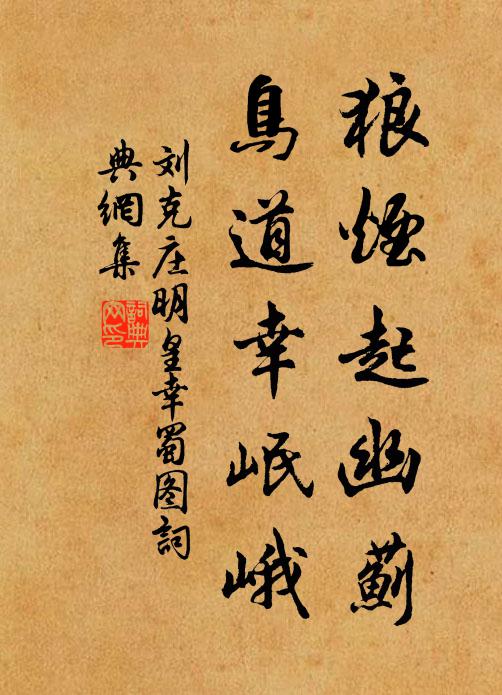 狼煙起幽薊
鳥道幸岷峨
刘克庄明皇幸蜀图詞
典網集
詞典网印